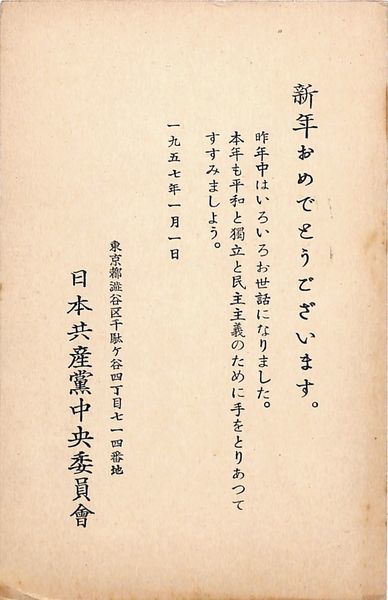 新年おめでとうございます。
昨年中はいろいろお世話になりました。
本年も平和と獨立と民主主義のために手をとりあつて
すすみましよう。
一九五七年一月一日
東京都澁谷区千駄ケ谷四丁目七一四番地
日本共産黨中央委員會